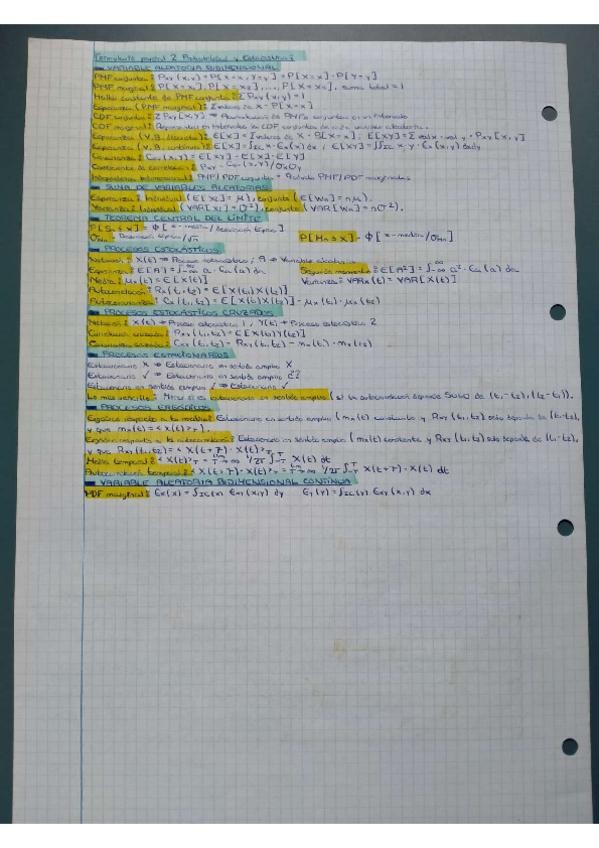 Formulario parcial 2 Probabilidad y Estadística
VARIABLE ALEATORIA BIDIMENSIONAL
PMF conjunta: Pxy(x,y) = P[X=x, Y=y] = P[X=x]·P[Y=y]
PMF marginal: P[X=x₁], P[X=x₂], ..., P[X=xₙ], suma total = 1
Hallar constante de PMF conjunta: Σ Pxy(x,y) = 1
Esperanza (PMF marginal): Σ valores de X · P[X=x]
CDF conjunta: Σ Pxy(x,y) → de PMFs conjuntas en un intervalo
CDF marginal: en intervalos la CDF conjunta de cada variable aleatoria.
Esperanza (V.B. discreta): E[X] = Σ valores de X · P[X=x]; E[XY] = Σ val x · val y · Pxy[x,y]
Esperanza (V.B. continua): E[X] = ∫ x · fx(x) dx ; E[XY] = ∫∫ x·y·fx(x,y) dxdy
Covarianza: Cov(X,Y) = E[XY] - E[X]·E[Y]
Coeficiente de correlación: ρxy = Cov(X,Y)/σxσy
Independencia bidimensional: PMF/PDF conjunta = PMF/PDF marginales
SUMA DE VARIABLES ALEATORIAS
Esperanza: Individual (E[Xᵢ] = μ), conjunta (E[Wₙ] = nμ).
Varianza: Individual (VAR[Xᵢ] = σ²), conjunta (VAR[Wₙ] = nσ²).
TEOREMA CENTRAL DEL LÍMITE
P[Sₙ ≤ x] = Φ[x-media/Desviación típica]
σMₙ = Desviación típica/√n P[Mₙ ≤ x] = Φ[x-media/σMₙ]
PROCESOS ESTOCÁSTICOS
Notación: X(t) → Proceso estocástico ; A → Variable aleatoria
Esperanza: E[A] = ∫-∞^∞ a · fa(a) da Segundo momento: E[A²] = ∫-∞^∞ a² · fa(a) da
Media: μx(t) = E[X(t)] Varianza: VARx(t) = VAR[X(t)]
Autocorrelación: Rx(t₁,t₂) = E[X(t₁)X(t₂)]
Autocovarianza: Cx(t₁,t₂) = E[X(t₁)X(t₂)] - μx(t₁)·μx(t₂)
PROCESOS ESTOCÁSTICOS CRUZADOS
Notación: X(t) → Proceso estocástico 1 / Y(t) → Proceso estocástico 2
Correlación cruzada: Rxy(t₁,t₂) = E[X(t₁)Y(t₂)]
Covarianza cruzada: Cxy = Rxy(t₁,t₂) - mx(t₁)·my(t₂)
PROCESOS ESTACIONARIOS
Estacionario X → Estacionario en sentido amplio X
Estacionario ✓ → Estacionario en sentido amplio ¿?
Estacionario en sentido amplio ✓ → Estacionario ✓
Lo más sencillo: Mirar si es estacionario en sentido amplio (si la autocorrelación depende SOLO de (t₁-t₂), (t₂-t₁)).
PROCESOS ERGÓDICOS
Ergódico respecto a la media: Estacionario en sentido amplio (mx(t) constante y Rxx(t₁,t₂) solo depende de (t₁-t₂),
y que mx(t) = <X(t)>T.
Ergódico respecto a la autocorrelación: Estacionario en sentido amplio (mx(t) constante y Rxx(t₁,t₂) solo depende de (t₁-t₂),
y que Rxx(t₁,t₂) = <X(t+τ)·X(t)>T
Media temporal: <X(t)>T = lim T→∞ 1/2T ∫-T^T X(t) dt
Autocorrelación temporal: <X(t+τ)·X(t)>T = lim T→∞ 1/2T ∫-T^T X(t+τ)·X(t) dt
VARIABLE ALEATORIA BIDIMENSIONAL CONTINUA
PDF marginal: fx(x) = ∫ fxy(x,y) dy fy(y) = ∫ fxy(x,y) dx